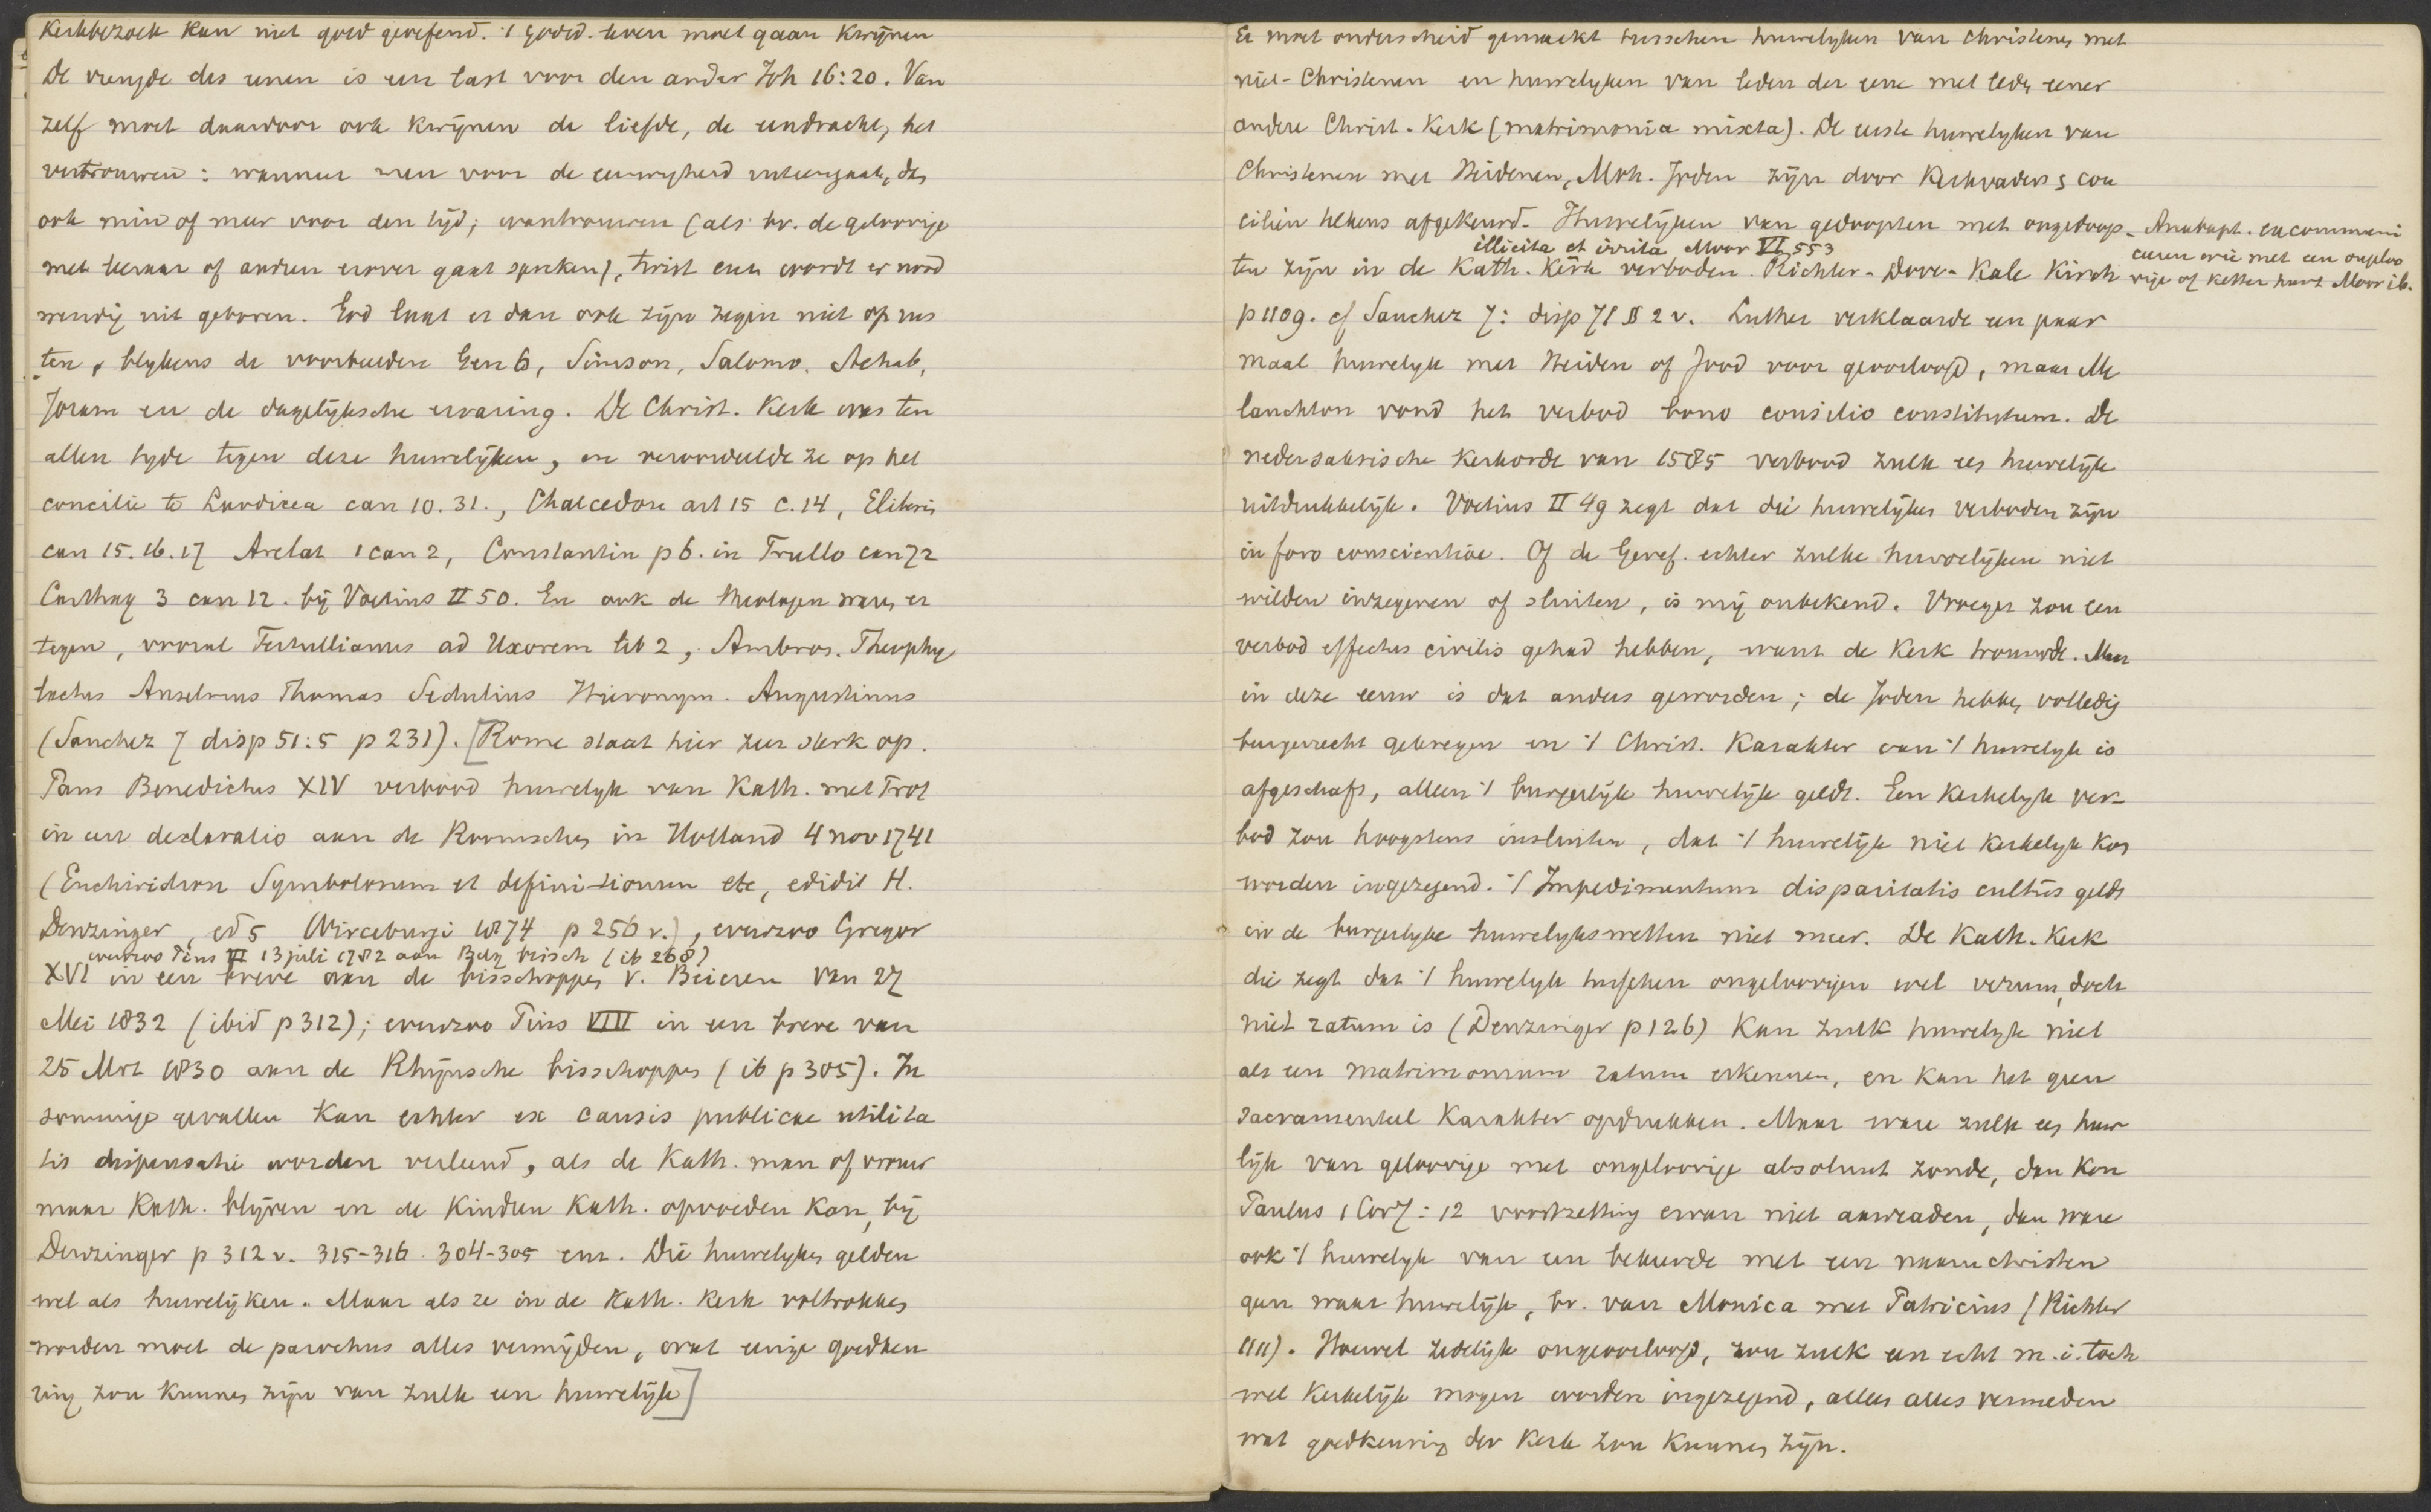 Kerkbezoek kan niet goed geoefend. 't godsd. leven moet gaan kwijnen
De vreugde des eenen is een last voor den ander Joh 16:20. Van
zelf moet daardoor ook kwijnen de liefde, de eendracht, het
vertrouwen: wanneer men voor de eeuwigheid uiteengaat, dan
ook min of meer voor den tijd; wantrouwen (als bv. de geloovige
met leeraar of andere erover gaat spreken), twist enz. wordt er nood
wendig uit geboren. God laat er dan ook zijn zegen niet op rus
ten, blykens de voorbeelden Gen 6, Simson, Salomo, Achab,
Joram en de dagelijksche ervaring. De Christ. Kerk was ten
allen tyde tegen deze huwelijken, en veroordeelde ze op het
concilie te Laodicea can 10. 31., Chalcedon art 15 c. 14, Eliberis
can 15. 16. 17 Arelat 1 can 2, Constantin p 6. in Trullo can 72
Carthag 3 can 12. bij Voetius II 50. En ook de theologen waren er
tegen, vooral Tertullianus ad Uxorem lib 2, Ambros. Theophy
lactus Anselmus Thomas Sedulius Hieronym. Augustinus
(Sanchez 7 disp 51:5 p 231). [Rome staat hier zeer sterk op.
Paus Benedictus XIV verbood huwelyk van Kath. met Prot
in een declaratio aan de Roomschen in Holland 4 nov 1741
(Enchiridion Symbolorum et definitionum etc, edidit H.
Denzinger, ed 5 Wirceburgi 1874 p 256 v.), evenzoo Gregor
evenzoo Pius VI 13 juli 1782 aan Belg. bissch (ib 268)
XVI in een breve aan de bisschoppen v. Beieren van 27
Mei 1832 (ibid p 312); evenzoo Pius VIII in een breve van
25 Mrt 1830 aan de Rhijnsche bisschoppen (ib p 305). In
sommige gevallen kan echter ex causis publicae utilita
tis dispensatie worden verleend, als de Kath. man of vrouw
maar Kath. blijven en de kinderen Kath. opvoeden kan, bij
Denzinger p 312 v. 315-316. 304-305 enz. Die huwelyken gelden
wel als huwelijken. Maar als ze in de Kath. Kerk voltrokken
worden moet de parochus alles vermijden, wat eenige goedkeu
ring zou kunnen zijn van zulk een huwelijk]
Er moet onderscheid gemaakt tusschen huwelyken van Christenen met
niet-Christenen en huwelyken van leden der eene met leden eener
andere Christ. Kerk (matrimonia mixta). De eerste huwelyken van
Christenen met Heidenen, Moh. Joden zijn door Kerkvaders & con
ciliën telkens afgekeurd. Huwelijken van gedoopten met ongedoop-
illicita et irrita Moor VI, 553
ten zijn in de Kath. Kerk verboden. Richter-Dove-Kahl Kirch
Anabapt. excommuni
ceeren wie met een ongeloo
vige of ketter huwt Moor ib.
p 1109. cf Sanchez 7: disp 71 § 2 v. Luther verklaarde een paar
maal huwelyk met Heiden of Jood voor geoorloofd, maar Me
lanchton vond het verbod bono consilio constitutum. De
nedersaksische Kerkorde van 1585 verbood zulk een huwelijk
uitdrukkelijk. Voetius II 49 zegt dat die huwelijken verboden zijn
in foro conscientiae. Of de Geref. echter zulke huwelijken niet
wilden inzegenen of sluiten, is mij onbekend. Vroeger zou een
verbod effectus civilis gehad hebben, want de Kerk trouwde. Maar
in deze eeuw is dat anders geworden; de Joden hebben volledig
burgerrecht gekregen en 't Christ. karakter van 't huwelyk is
afgeschaft, alleen 't burgerlijk huwelijk geldt. Een kerkelyk ver-
bod zou hoogstens insluiten, dat 't huwelijk niet kerkelyk kon
worden ingezegend. 't Impedimentum disparitatis cultus geldt
in de burgerlyke huwelykswetten niet meer. De Kath. Kerk
die zegt dat 't huwelyk tusschen ongeloovigen wel verum, doch
niet ratum is (Denzinger p 126) kan zulk huwelyk niet
als een matrimonium ratum erkennen, en kan het geen
sacramenteel karakter opdrukken. Maar ware zulk een huwe
lijk van geloovige met ongeloovige absoluut zonde, dan kon
Paulus 1 Cor 7:12 voortzetting ervan niet aanraden, dan ware
ook 't huwelyk van een bekeerde met een naamchristen
geen waar huwelijk, bv. van Monica met Patricius (Richter
1111). Hoewel zedelijk ongeoorloofd, zou zulk een echt m.i. toch
wel kerkelijk mogen worden ingezegend, alleen alles vermeden
wat goedkeuring der Kerk zou kunnen zijn.